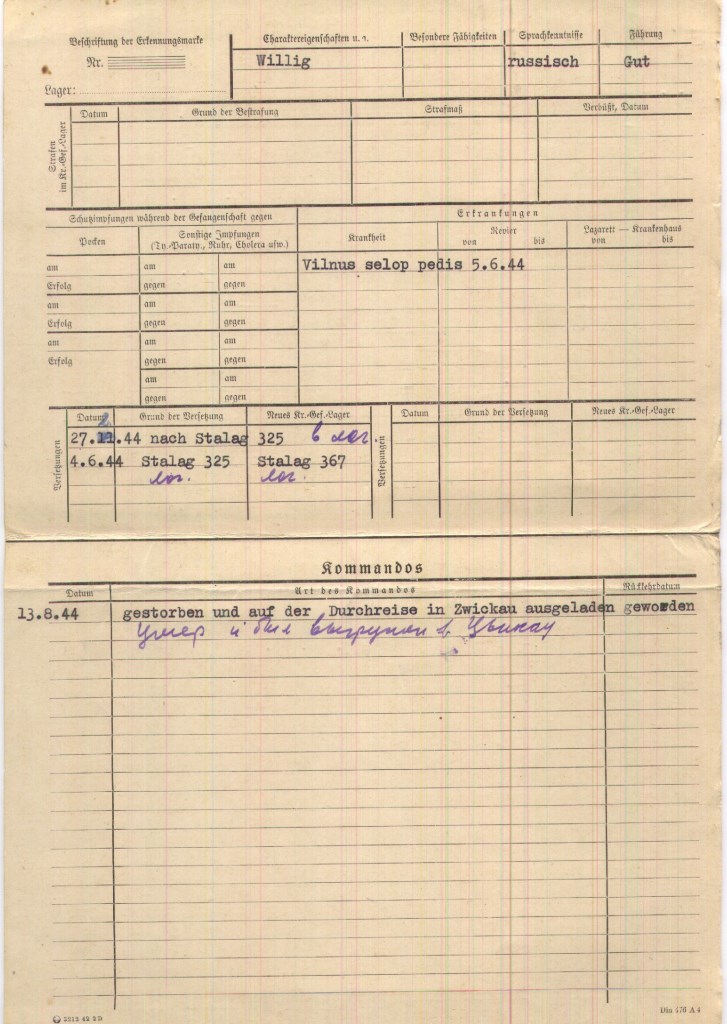 Beschriftung der Erkennungsmarke
Nr.
Lager:
Charaktereigenschaften u. a.
Besondere Fähigkeiten
Sprachkenntnisse
Führung
Willig
russisch
Gut
Strafen
im Kr.-Gef.-Lager
Datum
Grund der Bestrafung
Strafmaß
Verbüßt, Datum
Schutzimpfungen während der Gefangenschaft gegen
Erkrankungen
Pocken
Sonstige Impfungen
(Ty.-Paraty., Ruhr, Cholera usw.)
Krankheit
Revier
von bis
Lazarett — Krankenhaus
von bis
am am am
Vilnus selop pedis 5.6.44
Erfolg gegen gegen
am am am
Erfolg gegen gegen
am am am
Erfolg gegen gegen
am am
gegen gegen
Versetzungen
Datum Grund der Versetzung Neues Kr.-Gef.-Lager
27. .44 nach Stalag 325 в лаг.
4.6.44 Stalag 325 Stalag 367
лаг. лаг.
Versetzungen
Datum Grund der Versetzung Neues Kr.-Gef.-Lager
Kommandos
Datum Art des Kommandos Rückkehrdatum
13.8.44 gestorben und auf der Durchreise in Zwickau ausgeladen geworden
Умер и был выгружен в Цвикау
2312 42 2D
Din 476 A 4